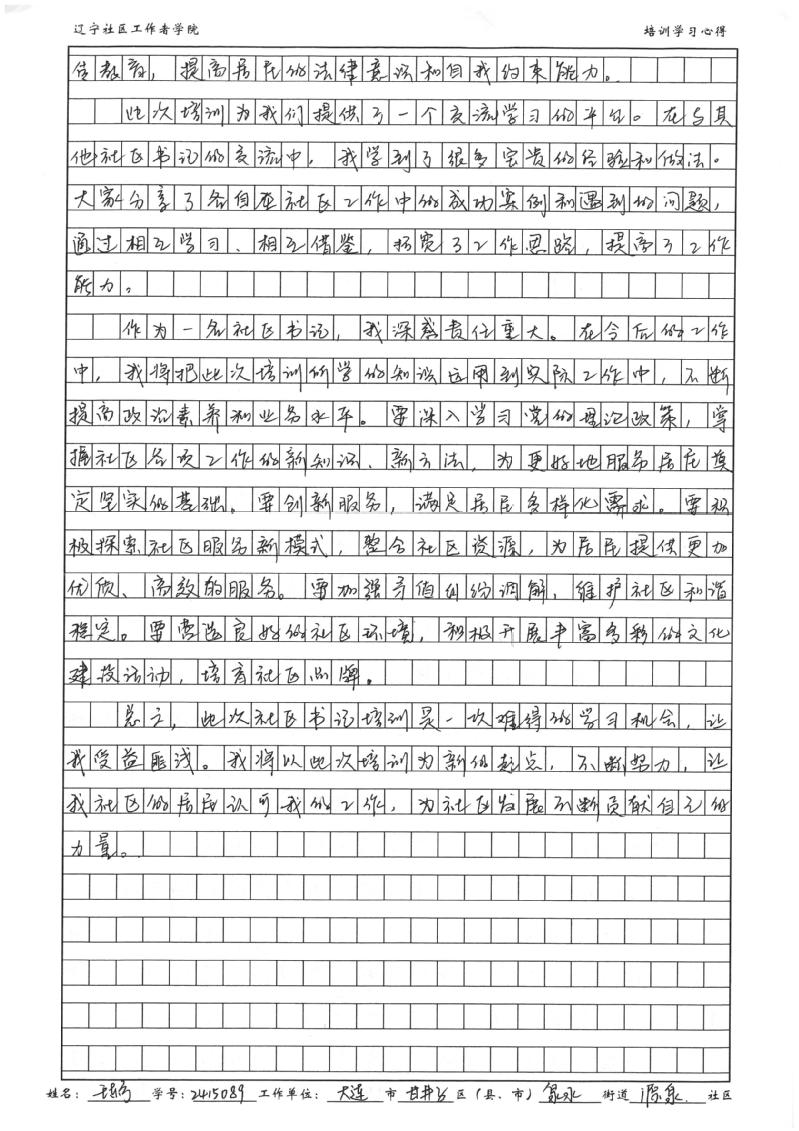 辽宁社区工作者学院 培训学习心得
传教育，提高居民的法律意识和自我约束能力。
此次培训为我们提供了一个交流学习的平台。在与其
他社区书记的交流中，我学到了很多宝贵的经验和做法。
大家分享了各自在社区工作中的成功案例和遇到的问题，
通过相互学习、相互借鉴，拓宽了工作思路，提高了工作
能力。
作为一名社区书记，我深感责任重大。在今后的工作
中，我将把此次培训所学的知识运用到实际工作中，不断
提高政治素养和业务水平。要深入学习党的理论政策，掌
握社区各项工作的新知识、新方法，为更好地服务居民奠
定坚实的基础。要创新服务，满足居民多样化需求。要积
极探索社区服务新模式，整合社区资源，为居民提供更加
优质、高效的服务。要加强矛盾纠纷调解，维护社区和谐
稳定。要营造良好的社区环境，积极开展丰富多彩的文化
建设活动，培育社区品牌。
总之，此次社区书记培训是一次难得的学习机会，让
我受益匪浅。我将以此次培训为新的起点，不断努力，让
我社区的居民认可我的工作，为社区发展不断贡献自己的
力量。
姓名： 学号：2415089 工作单位：大连 市 甘井子 区（县、市） 泉水 街道 源泉 社区